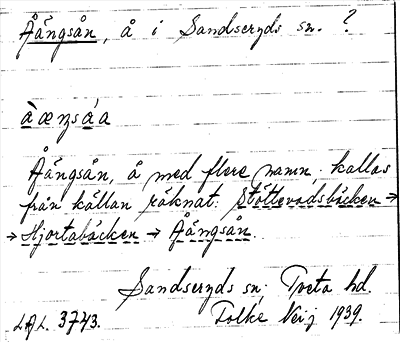 Åängsån, å i Sandseryds sn. ?
å̀ æŋsá̊ a
Åängsån, å med flere namn, kallas
från källan räknat: Stöttevadsbäcken →
→ Hjortabäcken → Åängsån.
Sandseryds sn; Tveta hd.
LAL. 3743. Folke Neij 1939.